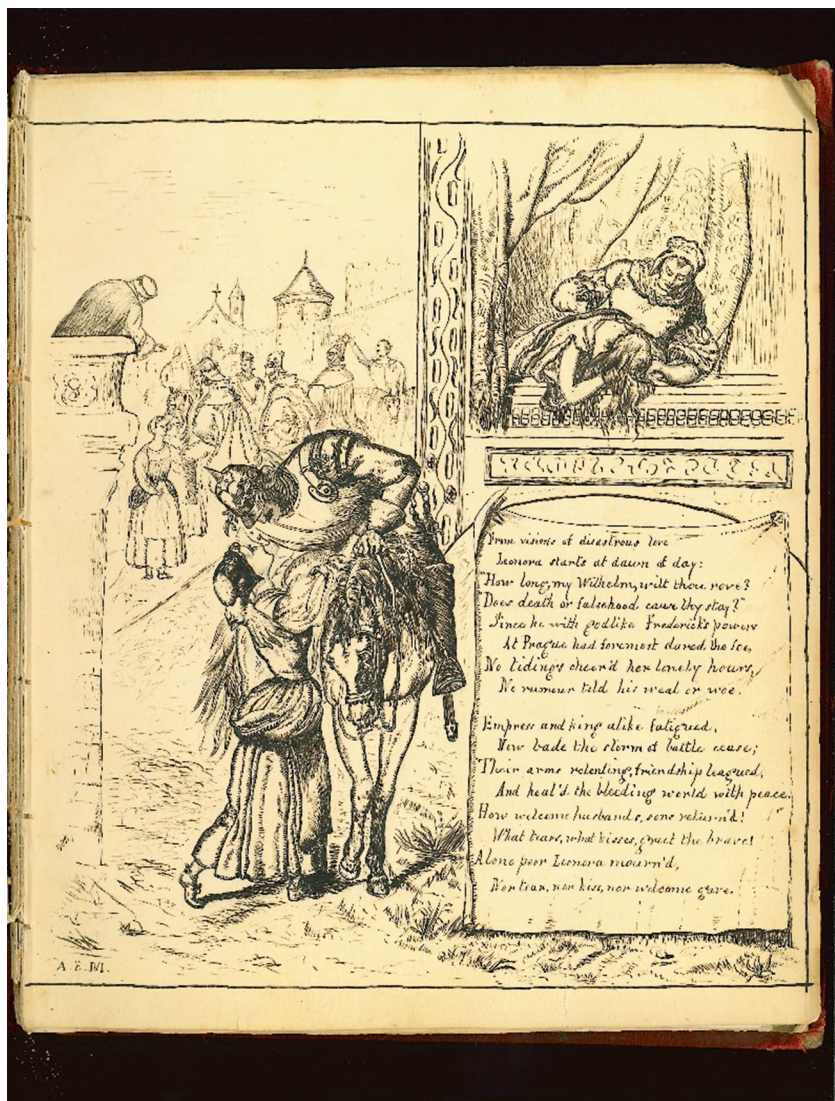 From visions of disastrous love
Leonora starts at dawn of day:
"How long, my Wilhelm, wilt thou rove?
Does death or falsehood cause thy stay?"
Since he with godlike Frederick's powers
At Prague had foremost dared the foe,
No tidings cheer'd her lonely hours,
No rumour told his weal or woe.
Empress and king alike fatigued,
Now bade the storm of battle cease;
Their arms relenting, friendship leagued,
And heal'd the bleeding world with peace.
How welcome husbands, sons return'd!
What tears, what kisses, greet the brave!
Alone poor Leonora mourn'd,
Nor tear, nor kiss, nor welcome gave.